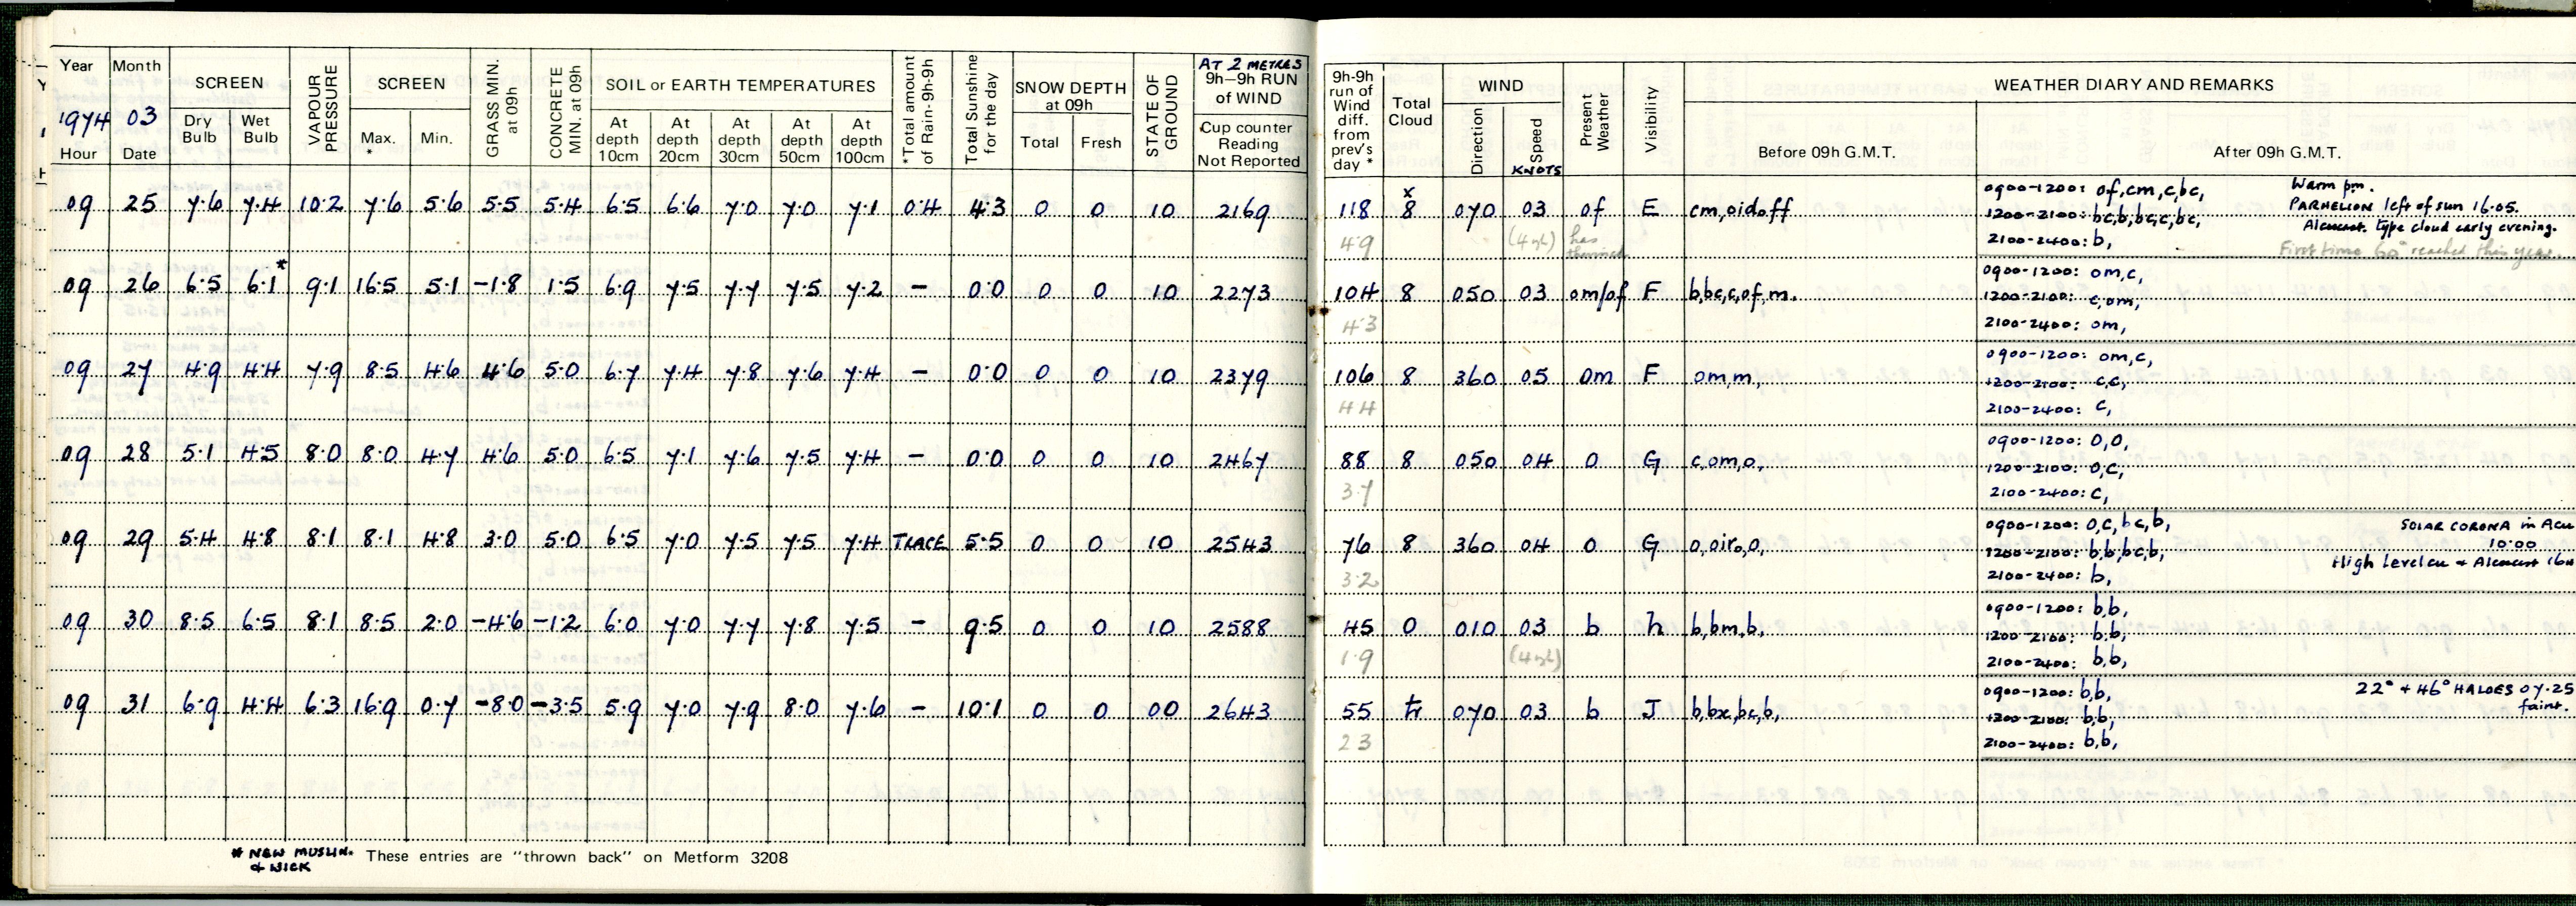 Year Month SCREEN VAPOUR PRESSURE SCREEN GRASS MIN. at 09h CONCRETE MIN. at 09h SOIL or EARTH TEMPERATURES *Total amount of Rain-9h-9h Total Sunshine for the day SNOW DEPTH at 09h STATE OF GROUND AT 2 METRES 9h–9h RUN of WIND
1974 03 Dry Bulb Wet Bulb Max. * Min. At depth 10cm At depth 20cm At depth 30cm At depth 50cm At depth 100cm Total Fresh Cup counter Reading Not Reported
Hour Date
09 25 7.6 7.4 10.2 7.6 5.6 5.5 5.4 6.5 6.6 7.0 7.0 7.1 0.4 4.3 0 0 10 2169
09 26 6.5 6.1* 9.1 16.5 5.1 -1.8 1.5 6.9 7.5 7.7 7.5 7.2 – 0.0 0 0 10 2273
09 27 4.9 4.4 7.9 8.5 4.6 4.6 5.0 6.7 7.4 7.8 7.6 7.4 – 0.0 0 0 10 2379
09 28 5.1 4.5 8.0 8.0 4.7 4.6 5.0 6.5 7.1 7.6 7.5 7.4 – 0.0 0 0 10 2467
09 29 5.4 4.8 8.1 8.1 4.8 3.0 5.0 6.5 7.0 7.5 7.5 7.4 TRACE 5.5 0 0 10 2543
09 30 8.5 6.5 8.1 8.5 2.0 -4.6 -1.2 6.0 7.0 7.7 7.8 7.5 – 9.5 0 0 10 2588
09 31 6.9 4.4 6.3 16.9 0.7 -8.0 -3.5 5.9 7.0 7.9 8.0 7.6 – 10.1 0 0 00 2643
* NEW MUSLIN. & WICK
These entries are "thrown back" on Metform 3208
9h-9h run of Wind diff. from prev's day * Total Cloud WIND Present Weather Visibility WEATHER DIARY AND REMARKS
Direction Speed KNOTS Before 09h G.M.T. After 09h G.M.T.
118 x 8 070 03 of E cm,oidoff 0900-1200: of,cm,c,bc, Warm pm.
1200-2100: bc,b,bc,c,bc, PARHELION left of sun 16.05.
Alcucast. type cloud early evening.
4.9 has thinned 2100-2400: b, First time 60° reached this year.
104 8 050 03 om/of F b,bc,c,of,m. 0900-1200: om,c,
1200-2100: c,om,
4.3 2100-2400: om,
106 8 360 05 om F om,m, 0900-1200: om,c,
1200-2100: c,c,
4.4 2100-2400: c,
88 8 050 04 o G c,om,o, 0900-1200: o,o,
1200-2100: o,c,
3.7 2100-2400: c,
76 8 360 04 o G o,oiro,o, 0900-1200: o,c,bc,b, SOLAR CORONA in Acu
1200-2100: b,b,bc,b, 10.00
3.2 2100-2400: b, High level cu + Alcucast
45 0 010 03 b h b,bm,b, 0900-1200: b,b,
1200-2100: b,b,
1.9 2100-2400: b,b,
55 tr 070 03 b J b,bx,bc,b, 0900-1200: b,b, 22° + 46° HALOES 07.25
1200-2100: b,b, faint.
2.3 2100-2400: b,b,